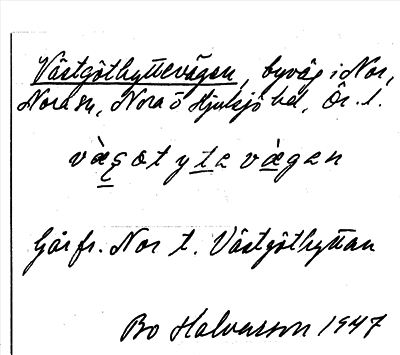 Västgöthyttevägen, byväg i Nor,
Nora sn, Nora o Hjulsjö hd, Ör. l.
vàs̨øt y te vàgen
Går fr. Nor t. Västgöthyttan
Bo Halvarson 1947